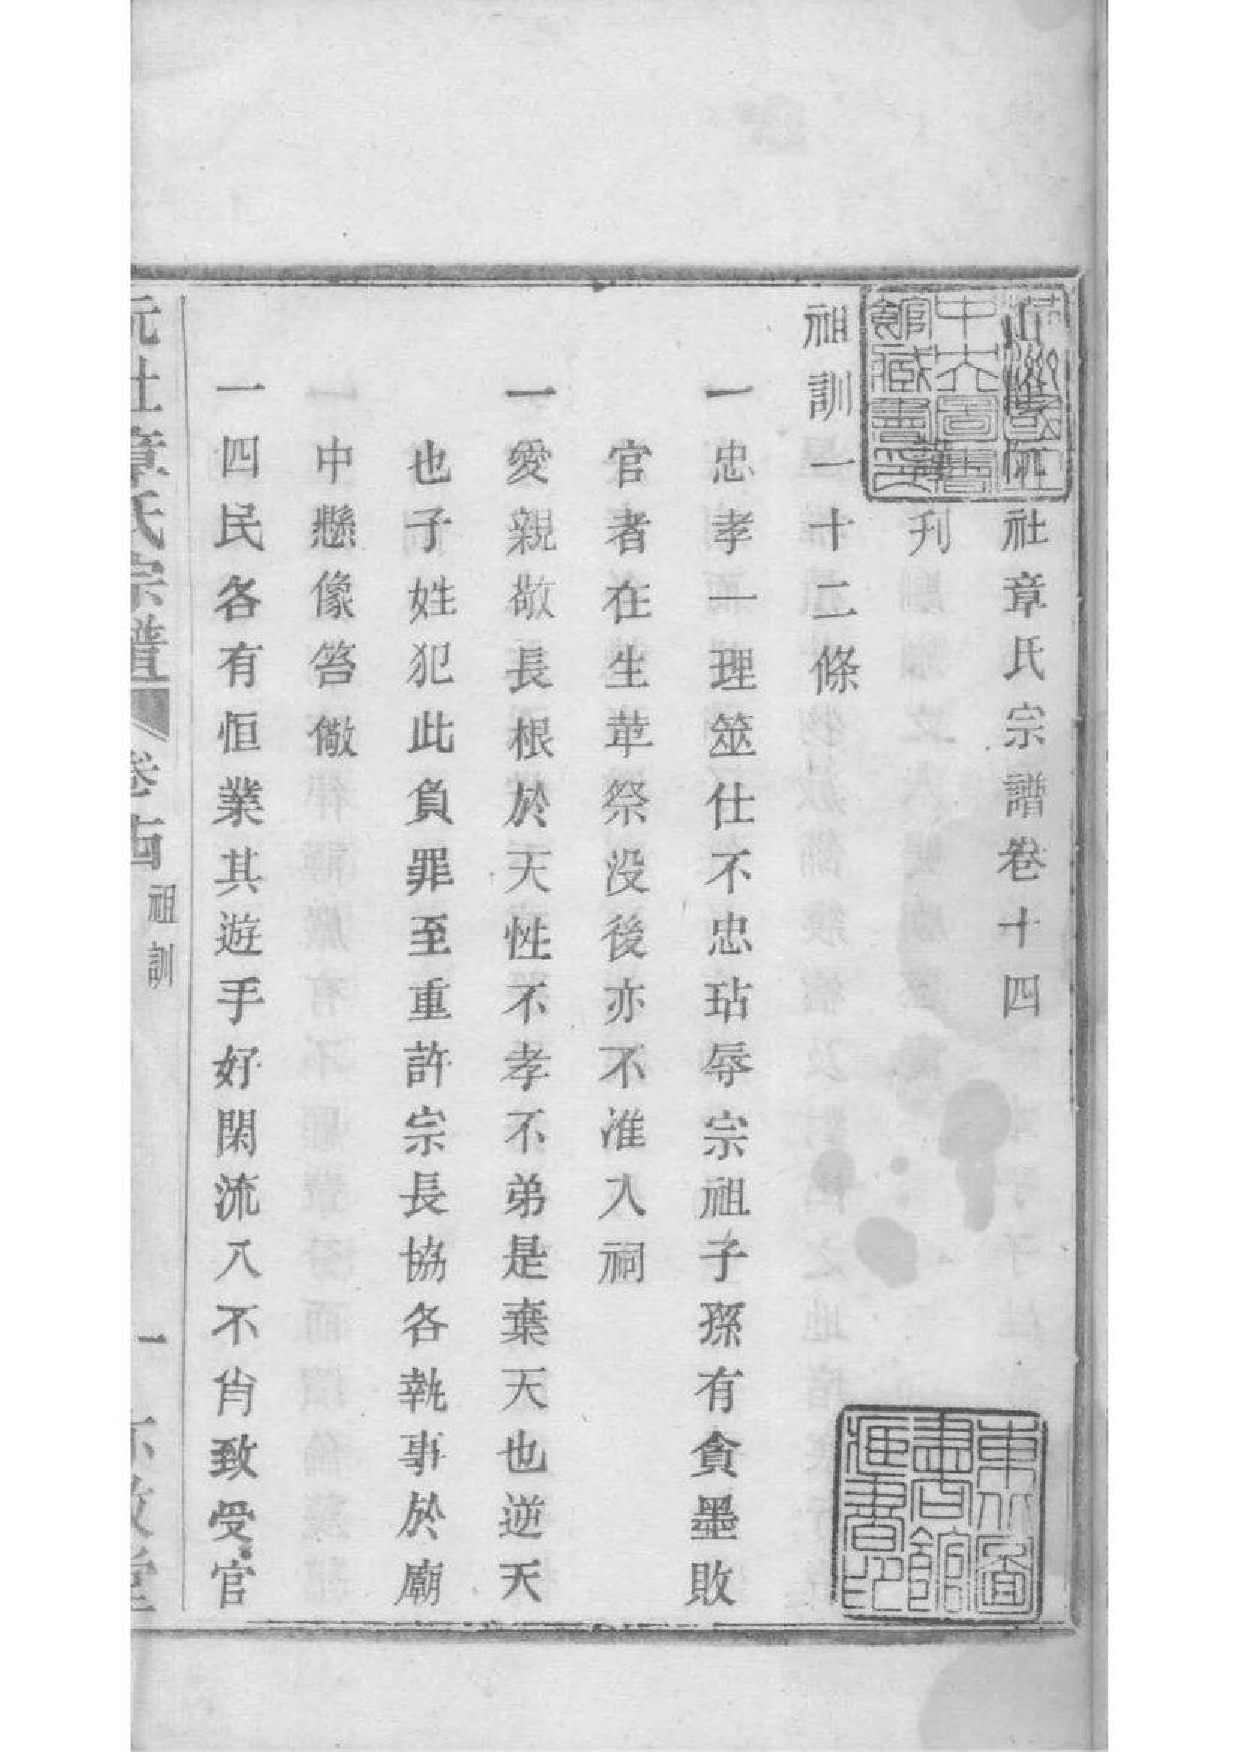 阮社章氏宗譜卷十四
刊
祖訓一十二條
一忠孝一理筮仕不忠玷辱宗祖子孫有貪墨敗
官者在生革祭没後亦不准入祠
一愛親敬長根於天性不孝不弟是棄天也逆天
也子姓犯此負罪至重許宗長協各執事於廟
中懸像笞儆
一四民各有恒業其遊手好閑流入不肖致受官
阮社章氏宗譜
卷十四
祖訓
一
堂
東北圖書館藏書印